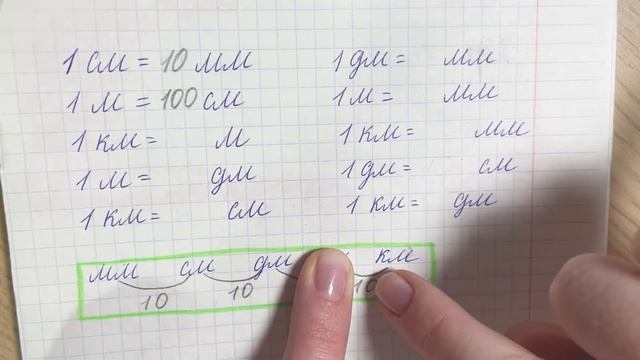 1 см = 10 мм
1 м = 100 см
1 км = м
1 м = дм
1 км = см
1 дм = мм
1 м = мм
1 км = мм
1 дм = см
1 км = дм
мм см дм км
10 10 10